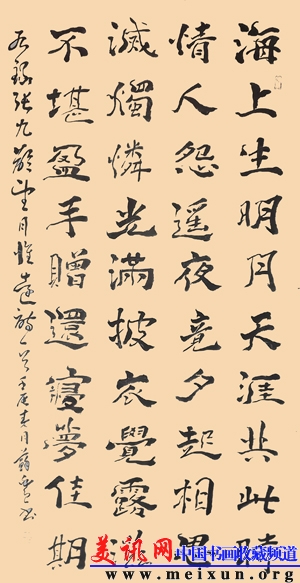 海上生明月天涯共此時
情人怨遥夜竟夕起相思
滅燭憐光滿披衣覺露滋
不堪盈手贈還寢夢佳期
右錄張九齡望月懷遠詩一首 春月 書
美讯网 中国书画收藏频道
www.meixun.org